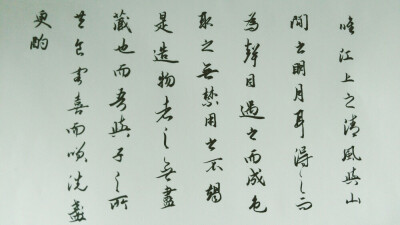 唯江上之清風與山
間之明月耳得之而
為聲目遇之而成色
取之無禁用之不竭
是造物者之無盡
藏也而吾與子之所
共食客喜而咲洗盞
更酌